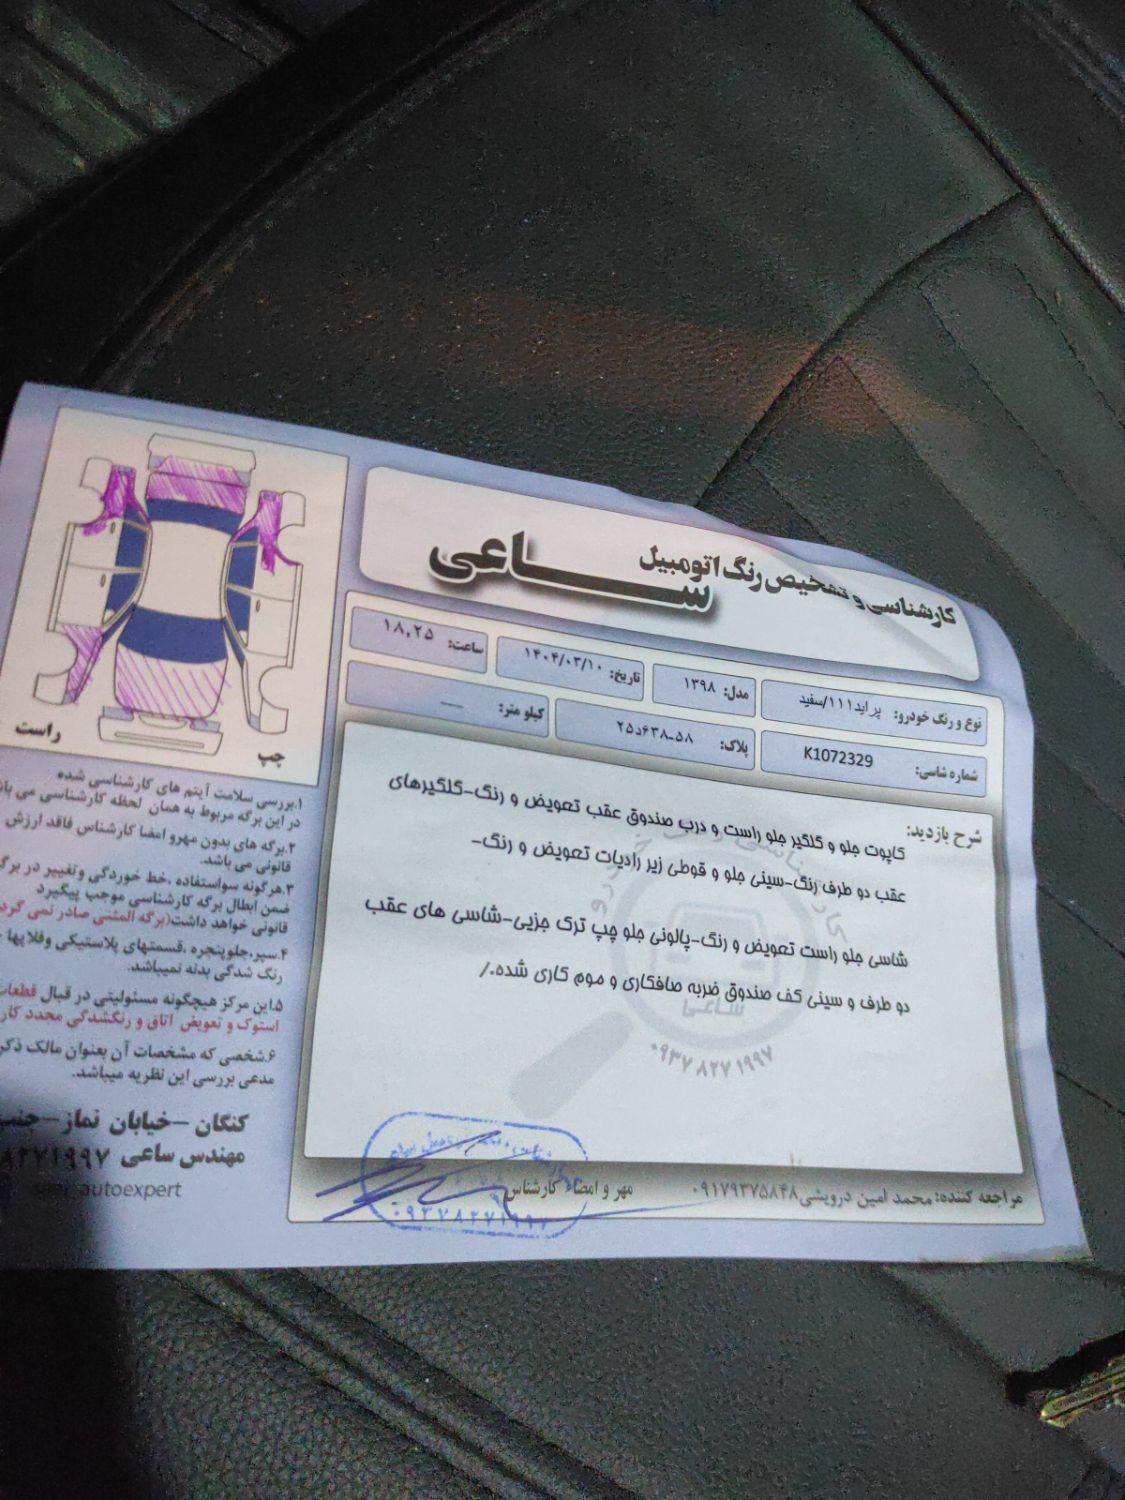 کارشناسی و تشخیص رنگ اتومبیل
ساعی
نوع و رنگ خودرو: پراید۱۱۱/سفید
مدل: ۱۳۹۸
تاریخ: ۱۴۰۴/۰۳/۱۰
ساعت: ۱۸,۲۵
شماره شاسی: K1072329
پلاک: ۵۸-۶۳۸د۲۵
کیلو متر: —
شرح بازدید:
کاپوت جلو و گلگیر جلو راست و درب صندوق عقب تعویض و رنگ-گلگیرهای
عقب دو طرف رنگ-سینی جلو و قوطی زیر رادیات تعویض و رنگ-
شاسی جلو راست تعویض و رنگ-پالونی جلو چپ ترک جزیی-شاسی های عقب
دو طرف و سینی کف صندوق ضربه صافکاری و موم کاری شده./
ساعی
۰۹۳۷ ۸۲۷ ۱۹۹۷
مراجعه کننده: محمد امین درویشی۰۹۱۷۹۳۷۵۸۴۸
مهر و امضاء کارشناس
۰۹۳۷۸۲۷۱۹۹۷
راست
چپ
۱.بررسی سلامت آیتم های کارشناسی شده
در این برگه مربوط به همان لحظه کارشناسی می
۲.برگه های بدون مهرو امضا کارشناس فاقد ارزش
قانونی می باشد.
۳.هرگونه سواستفاده ،خط خوردگی وتغییر در
ضمن ابطال برگه کارشناسی موجب پیگیرد
قانونی خواهد داشت(برگه المثنی صادر نمی
۴.سپر،جلوپنجره ،قسمتهای پلاستیکی وفلاپها
رنگ شدگی بدنه نمیباشد.
۵.این مرکز هیچگونه مسئولیتی در قبال قطعات
استوک و تعویض اتاق و رنگشدگی مجدد
۶.شخصی که مشخصات آن بعنوان مالک
مدعی بررسی این نظریه میباشد.
کنگان -خیابان نماز-
مهندس ساعی ۸۲۷۱۹۹۷
autoexpert